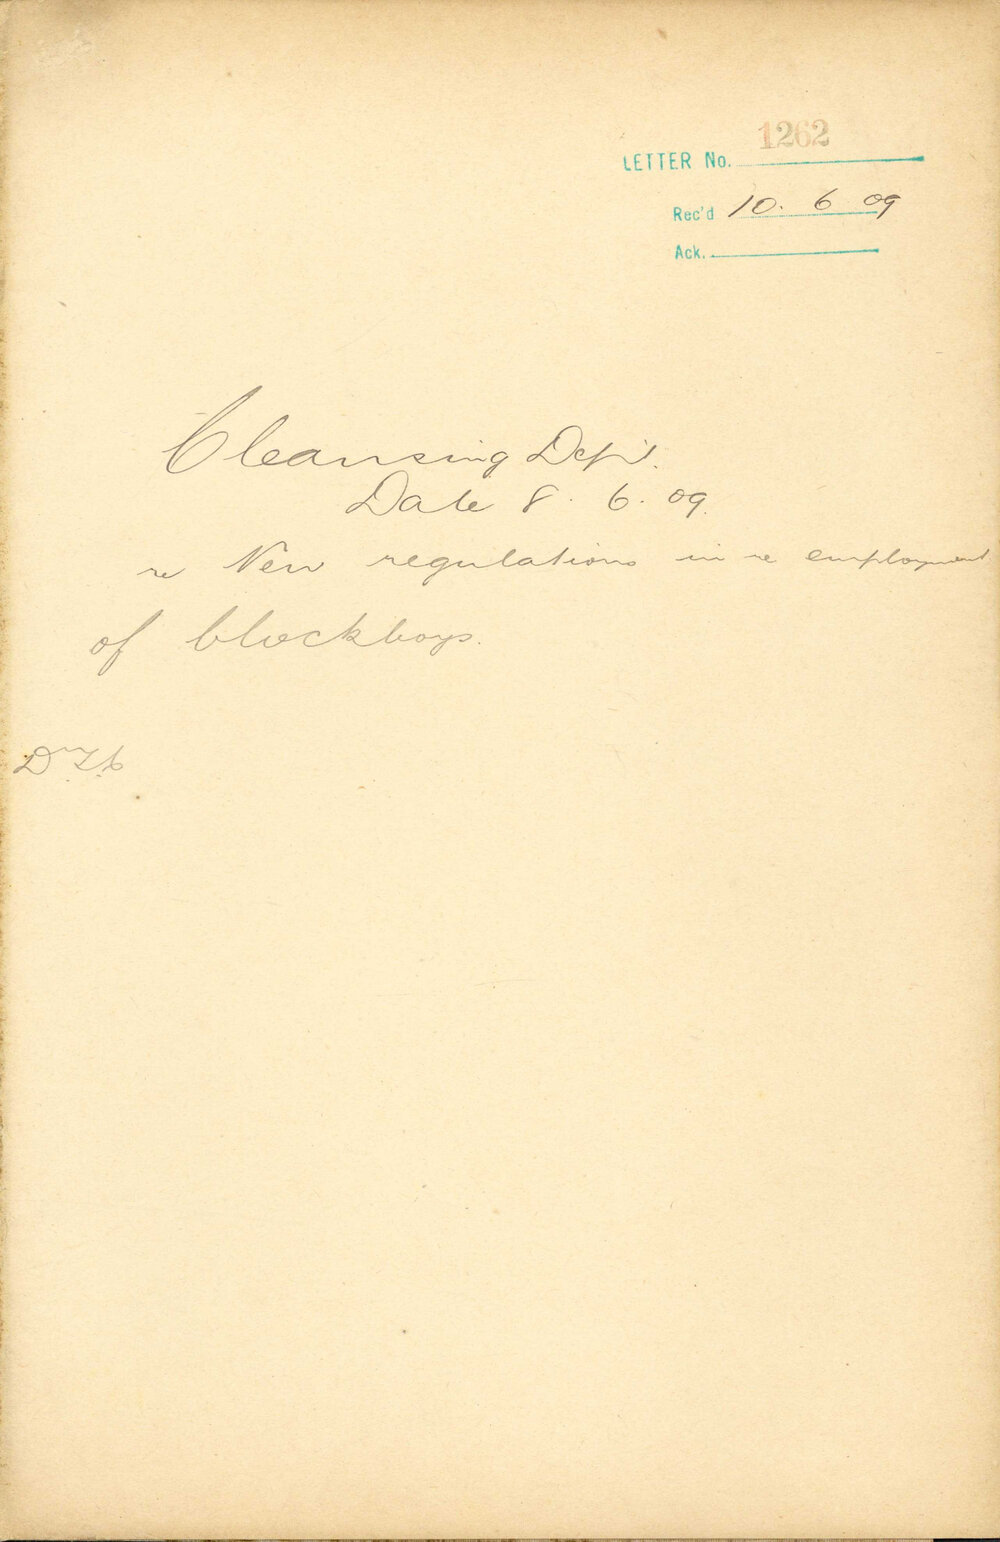 1262
LETTER No.
Rec'd 10. 6 09
Ack.
Cleansing Dept.
Date 8. 6. 09.
re New regulations in re employment
of blockboys.